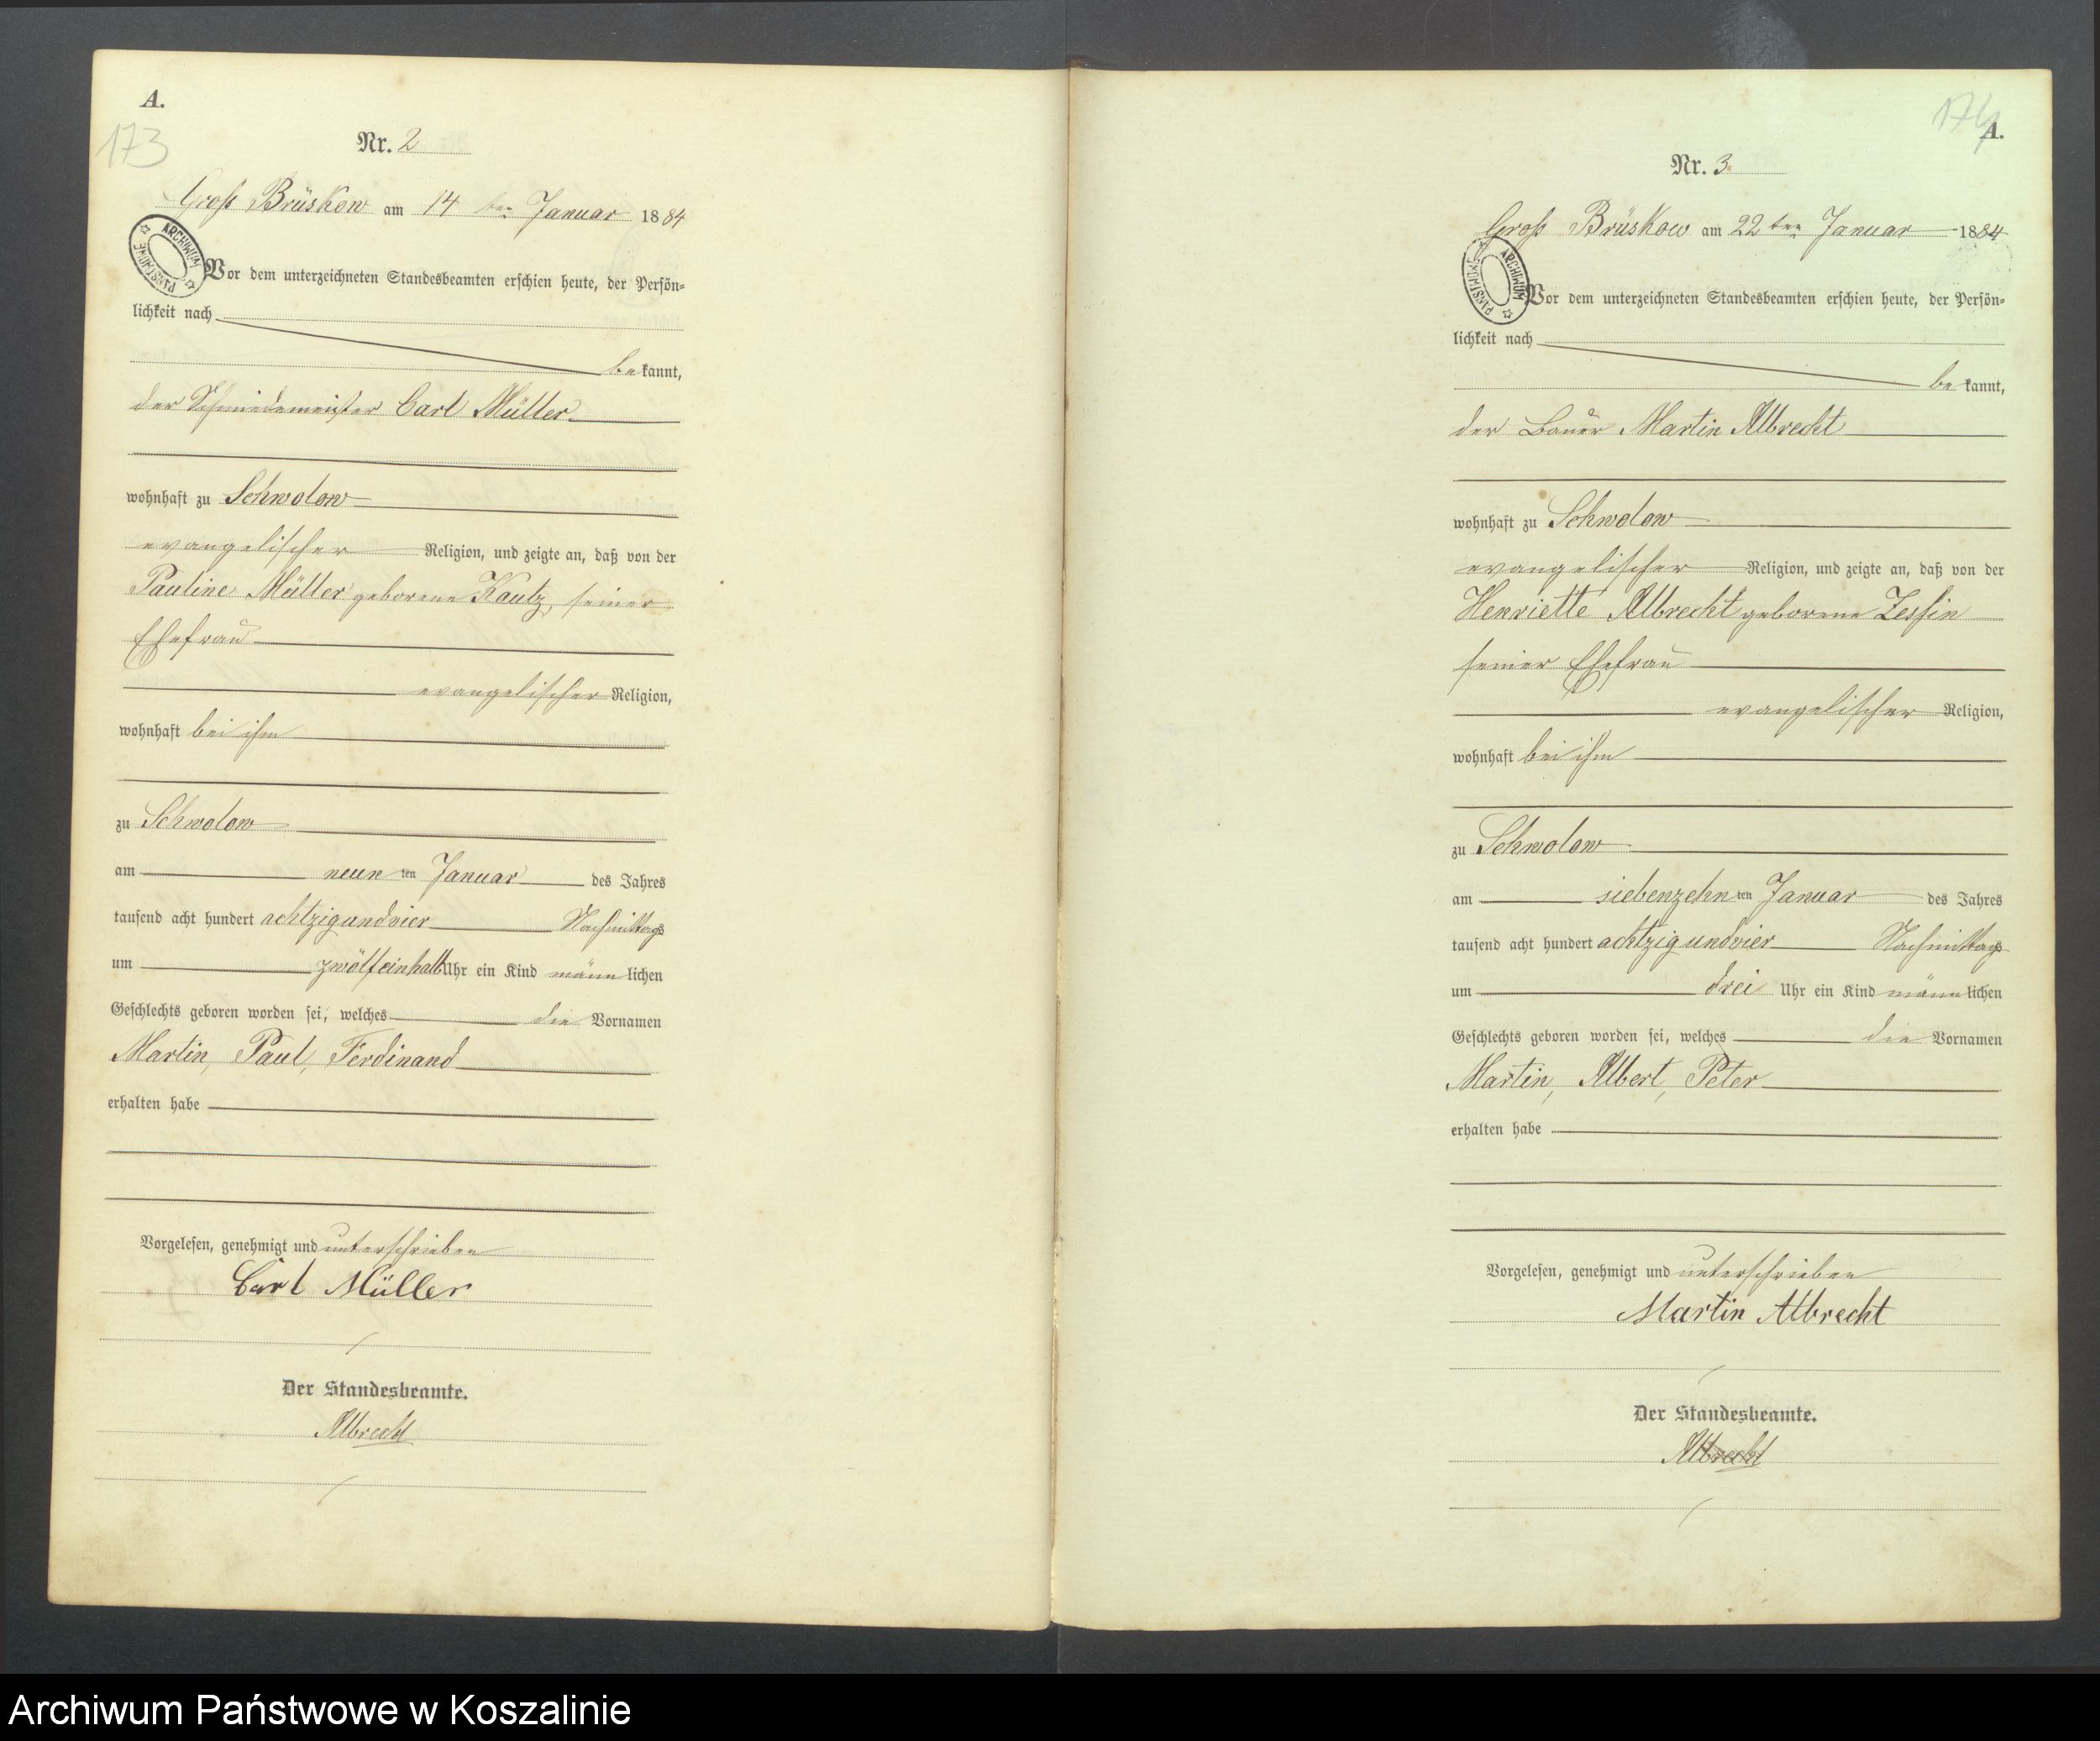 A.
173
Nr. 2
Groß Brüskow am 14 ten Januar 1884
ARCHIWUM PAŃSTWOWE
Vor dem unterzeichneten Standesbeamten erschien heute, der Persön=
lichkeit nach
bekannt,
der Schmiedemeister Carl Müller
wohnhaft zu Schwolow
evangelischer Religion, und zeigte an, daß von der
Pauline Müller geborene Kautz, seiner
Ehefrau
evangelischer Religion,
wohnhaft bei ihm
zu Schwolow
am neun ten Januar des Jahres
tausend acht hundert achtzigundvier Nachmittags
um zwölfeinhalb Uhr ein Kind männlichen
Geschlechts geboren worden sei, welches die Vornamen
Martin, Paul, Ferdinand
erhalten habe
Vorgelesen, genehmigt und unterschrieben
Carl Müller
Der Standesbeamte.
Albrecht
174
A.
Nr. 3.
Groß Brüskow am 22 ten Januar 1884
ARCHIWUM PAŃSTWOWE
Vor dem unterzeichneten Standesbeamten erschien heute, der Persön=
lichkeit nach
bekannt,
der Bauer Martin Albrecht
wohnhaft zu Schwolow
evangelischer Religion, und zeigte an, daß von der
Henriette Albrecht geborene Zessin
seiner Ehefrau
evangelischer Religion,
wohnhaft bei ihm
zu Schwolow
am siebenzehn ten Januar des Jahres
tausend acht hundert achtzigundvier Nachmittags
um drei Uhr ein Kind männlichen
Geschlechts geboren worden sei, welches die Vornamen
Martin, Albert, Peter
erhalten habe
Vorgelesen, genehmigt und unterschrieben
Martin Albrecht
Der Standesbeamte.
Albrecht
Archiwum Państwowe w Koszalinie